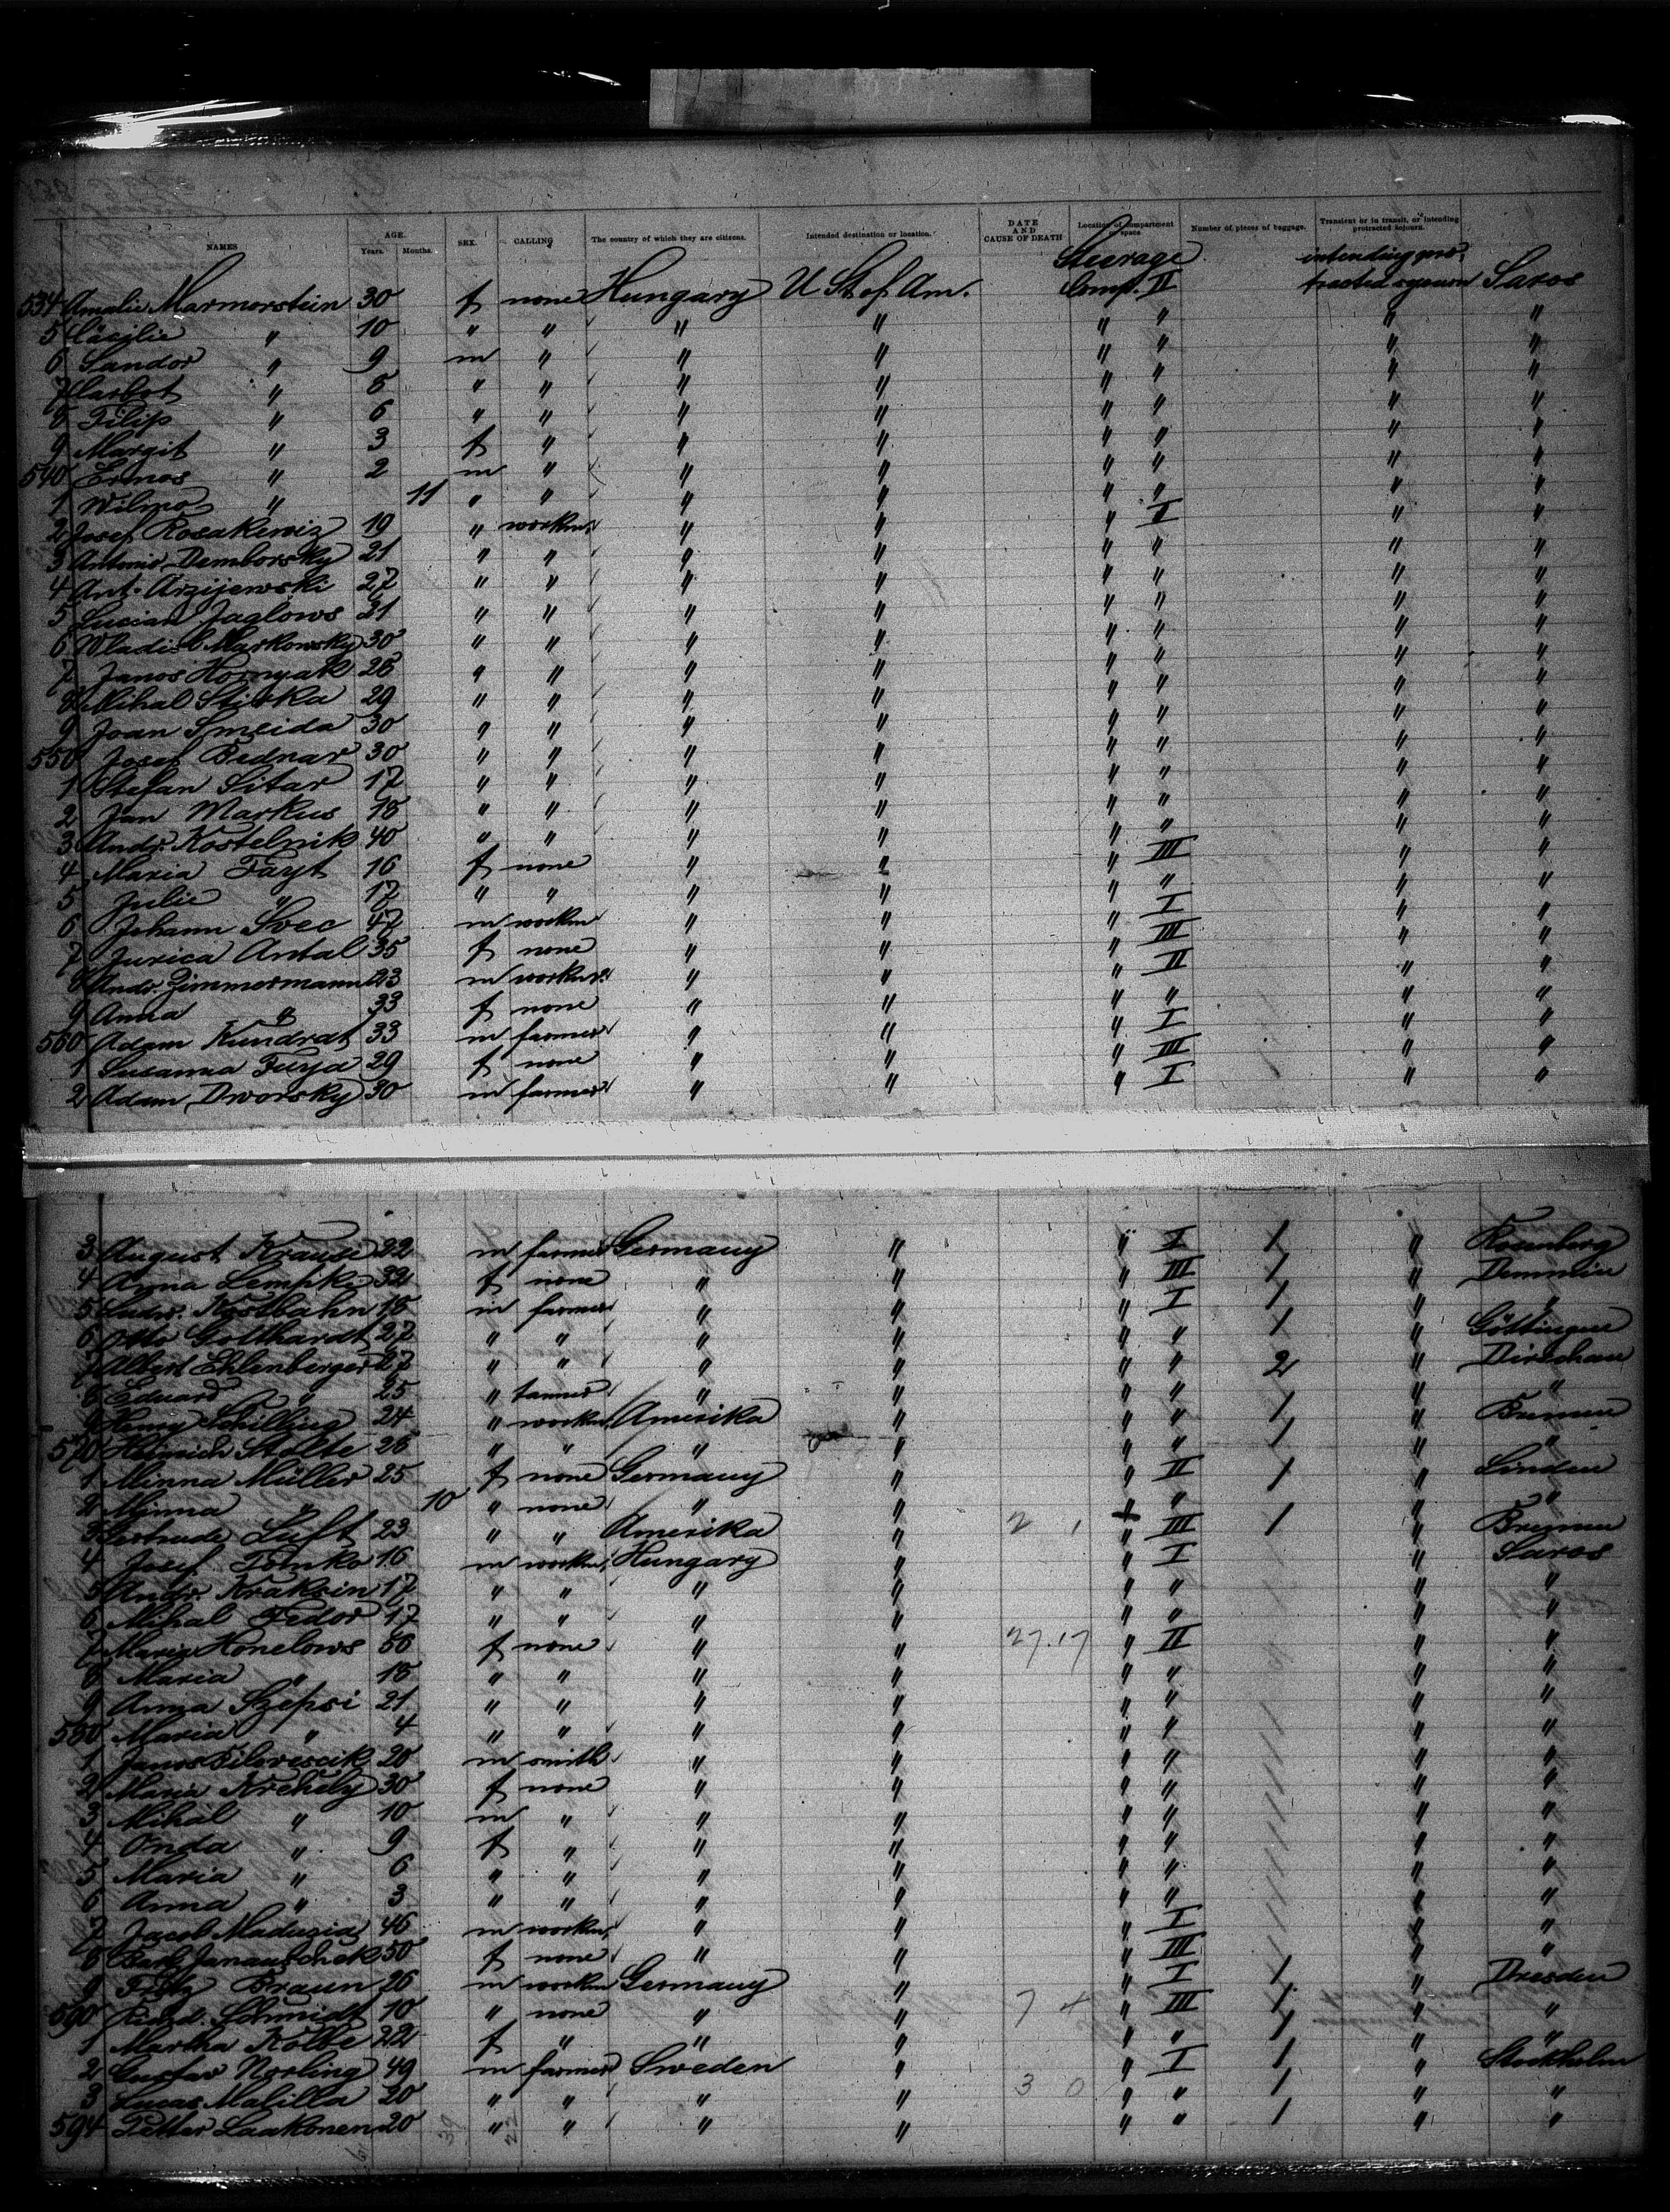 NAMES AGE. Years. Months. SEX. CALLING The country of which they are citizens. Intended destination or location. DATE AND CAUSE OF DEATH Location of compartment or space. Number of pieces of baggage. Transient or in transit, or intending protracted sojourn.
Steerage intending pro-
534 Amalie Marmorstein 30 f none Hungary U St. of Am. Comp. II tracted sojourn Saros
5 Cäcilie " 10 " " " " " " " "
6 Sandor " 9 m " " " " " " "
7 " 8 " " " " " " " "
8 Filip " 6 " " " " " " " "
9 Margit " 3 f " " " " " " "
540 Ernos " 2 m " " " " " " "
1 Wilmo " 11 " " " " " " " "
2 Josef Rosakewiz 19 " worker " " " I " "
3 Antonio Demborsky 21 " " " " " " " "
4 Ant. Arzijewski 27 " " " " " " " "
5 Lucian Jaglows 21 " " " " " " " "
6 Wladisl Markowsky 30 " " " " " " " "
7 Janos Hornyak 28 " " " " " " " "
8 Mihal Stirka 29 " " " " " " " "
9 Joan Smeida 30 " " " " " " " "
550 Josef Bednar 30 " " " " " " " "
1 Stefan Sitar 17 " " " " " " " "
2 Jan Markus 18 " " " " " " " "
3 Andr. Kostelnik 40 " " " " " " " "
4 Maria Fayt 16 f none " " " III " "
5 Julie " 17 " " " " " " " "
6 Johann Svec 47 m worker " " " I " "
7 Jurica Antal 35 f none " " " III " "
8 Andr. Zimmermann 23 m worker " " " II " "
9 Anna " 33 f none " " " " " "
560 Adam Kundrat 33 m farmer " " " I " "
1 Susanna Fuya 29 f none " " " III " "
2 Adam Dworsky 30 m farmer " " " I " "
3 August Krause 22 m farmer Germany " " I 1 " Rosenberg
4 Anna Lempke 32 f none " " " III 1 " Demmin
5 Ludw. Kostbahn 18 m farmer " " " I 1 " "
6 Otto Gotthardt 27 " " " " " " 1 " Göttingen
7 Albert Ehlenberger 27 " " " " " " 2 " Dirschau
8 Eduard " 25 " tanner " " " " " "
9 Henry Schilling 24 " worker Amerika " " " 1 " Bremen
570 Heinrich Stolte 26 " " " " " " 1 " "
1 Minna Müller 25 f none Germany " " II 1 " Linden
2 Minna " 10 " none " " " " " "
3 Gertrude Luft 23 " " Amerika " 2 1 " III 1 " Bremen
4 Josef Tomko 16 m worker Hungary " " I " Saros
5 Andr. Kraksin 17 " " " " " " " "
6 Mihal Fedor 17 " " " " " " " "
7 Maria Honelows 56 f none " " 27.17 " II " "
8 Maria " 18 " " " " " " " "
9 Anna Szepsi 21 " " " " " " " "
580 Maria " 4 " " " " " " " "
1 Janos 20 m smith " " " " " "
2 Maria Krehely 30 f none " " " " " "
3 Mihal " 10 m " " " " " " "
4 Onda " 9 f " " " " " " "
5 Maria " 6 " " " " " " " "
6 Anna " 3 " " " " " " " "
7 Jacob Maduzia 46 m worker " " " I " "
8 Barb. Janauschek 50 f none " " " III " "
9 Fritz Braun 26 m worker Germany " " I 1 " Dresden
590 Schmidt 10 " none " " 7 4 " III 1 " "
1 Martha Kolbe 22 f " " " " " 1 " "
2 Gustav Norling 49 m farmer Sweden " " I 1 " Stockholm
3 Lucas Malilla 20 " " " " 3 0 " " 1 " "
594 Petter Laakonen 20 " " " " " " 1 " "